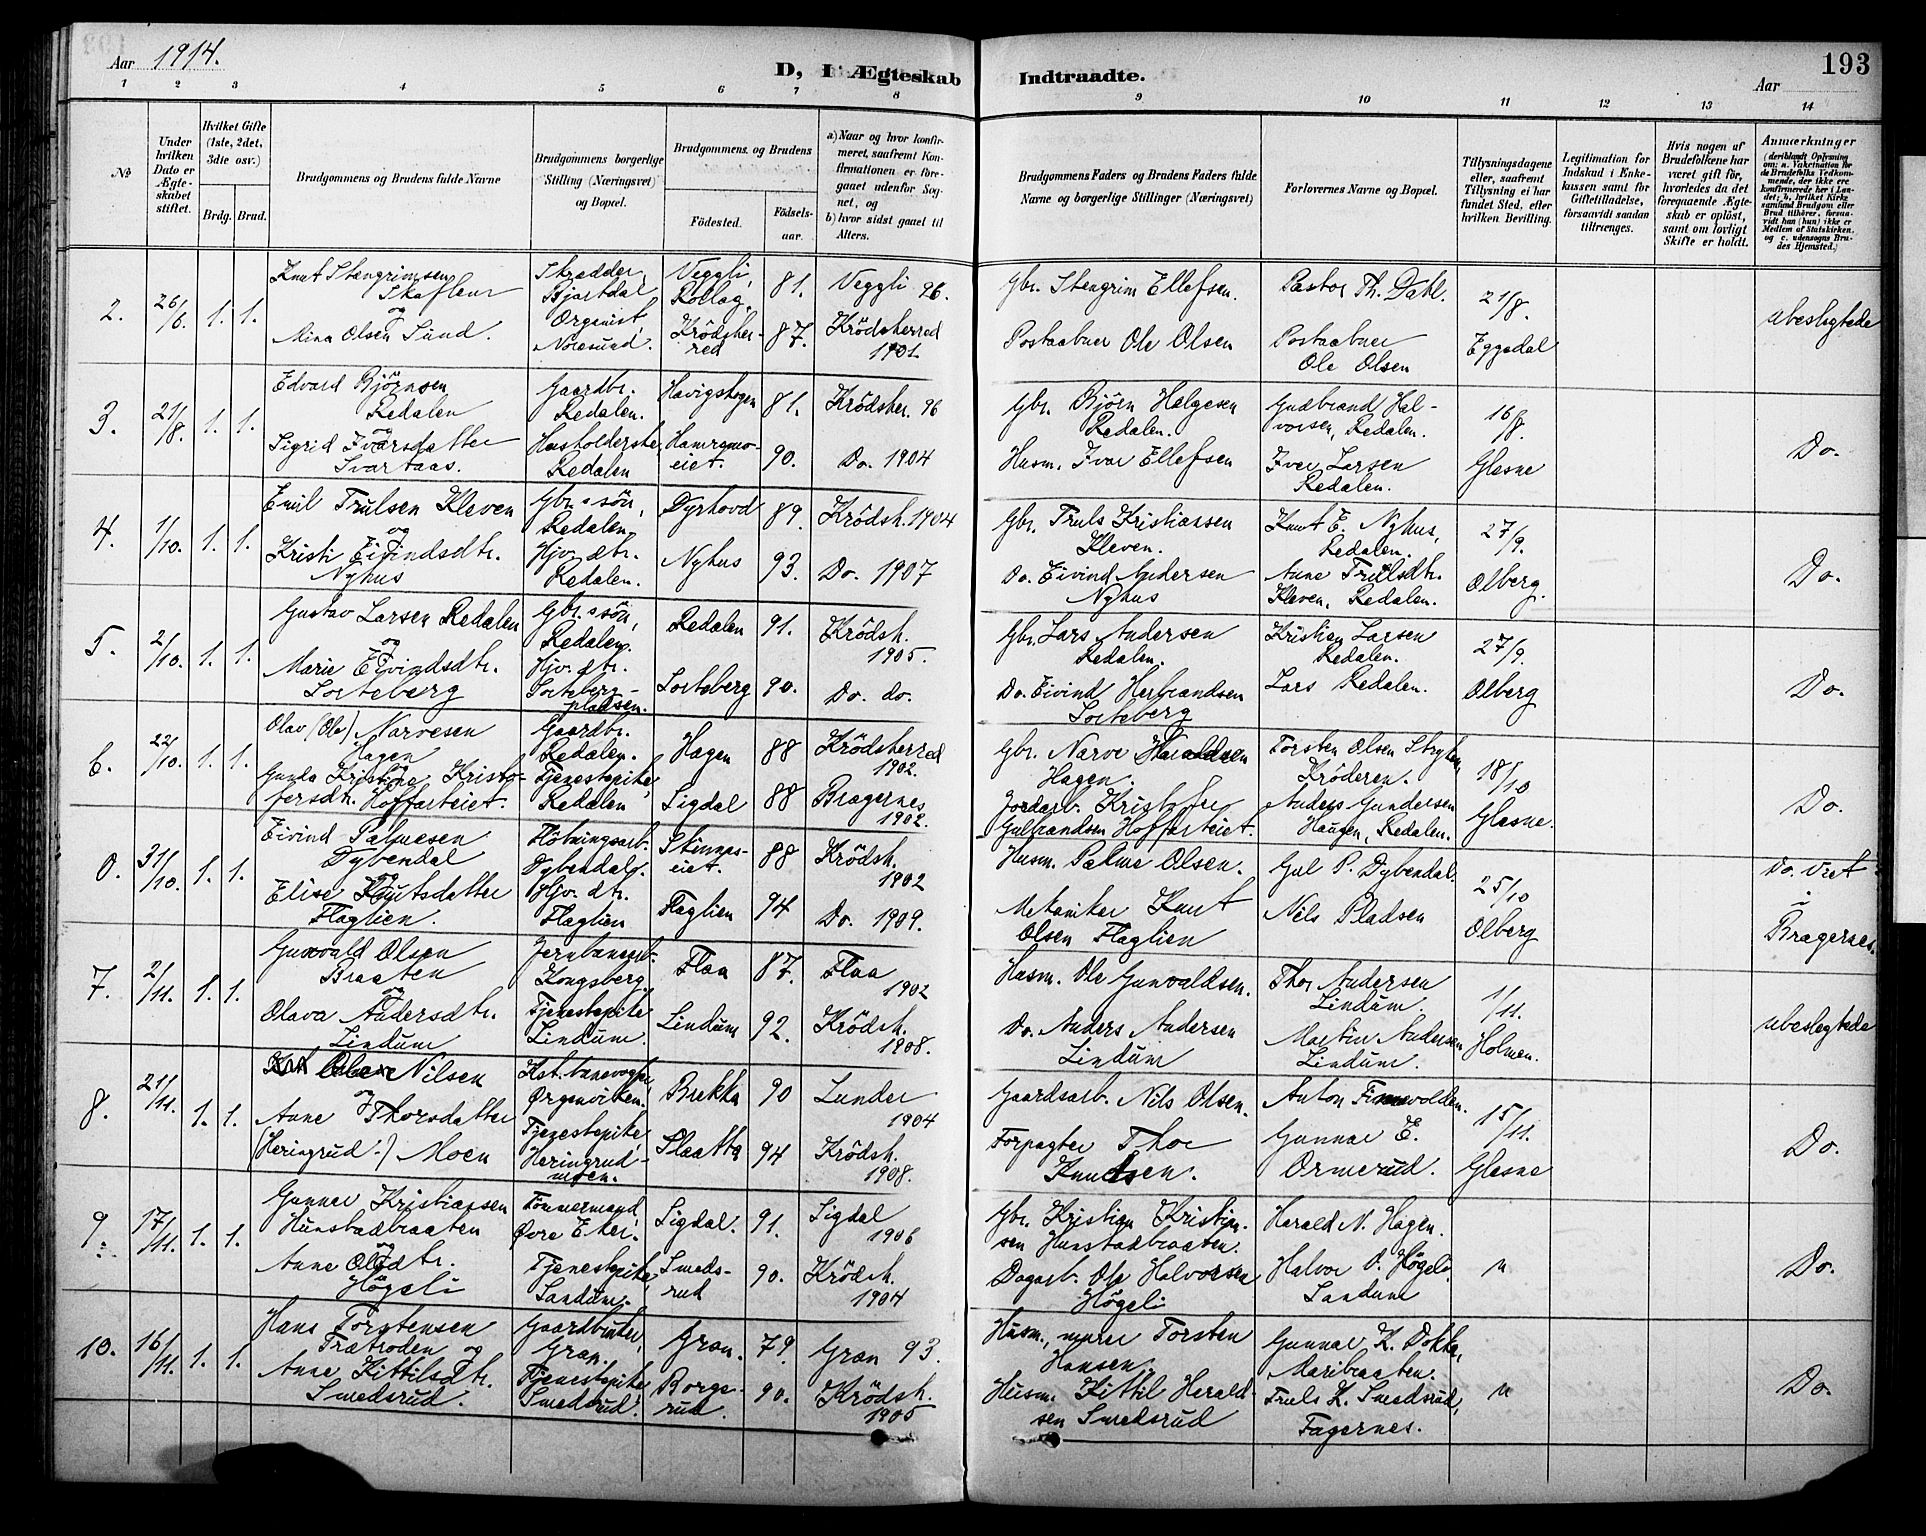 Aar 1914.
D, I. Ægteskab Indtraadte.
Aar
193
1 2 3 4 5 6 7 8 9 10 11 12 13 14
No
Under hvilken Dato er Ægteskabet stiftet.
Hvilket Gifte (1ste, 2det, 3die osv.)
Brdg. Brud.
Brudgommens og Brudens fulde Navne
Brudgommens borgerlige Stilling (Næringsvei) og Bopæl.
Brudgommens og Brudens
Födested.
Födselsaar.
a) Naar og hvor konfirmeret, saafremt Konfirmationen er foregaaet udenför Sognet, og
b) hvor sidst gaaet til Alters.
Brudgommens Faders og Brudens Faders fulde Navne og borgerlige Stillinger (Næringsvei)
Forlovernes Navne og Bopæl.
Tillysningsdagene eller, saafremt Tillysning ei har fundet Sted, efter hvilken Bevilling.
Legitimation for Indskud i Enkekassen samt for Giftetilladelse, forsaavidt saadan tiltrænges.
Hvis nogen af Brudefolkene har været gift för, hvorledes da det foregaaende Ægteskab er oplöst, samt om lovligt Skifte er holdt.
Anmerkninger
(deriblandt Oplysning om: a. Vakcination for de Brudefolks Vedkommende, der ikke ere konfirmerede her i Landet; b. hvilket Kirkesamfund Brudgom eller Brud tilhörer, forsaavidt han (hun) ikke er Medlem af Statskirken, og c. udensogns Brudes Hjemsted.)
2. 26/6 1. 1.
Knut Stengrimsen
Skaflem
og
Mina Olsen Sund.
Skrædder,
Bjertdal
Organist,
Noresund.
Veggli,
Rollag.
Krödsher-
red
81.
87.
Veggli 96.
Krödsherred
1901.
Gbr. Stengrim Ellefsen.
Postaabner Ole Olsen
Pastor Th. Dahl.
Postaabner
Ole Olsen
21/8.
Eggedal
ubeslegtede
3. 21/8. 1. 1.
Edvard Björnsen
Redalen
og
Sigrid Ivarsdatter
Svartaas.
Gaardbr.
Redalen.
Husholderske
Redalen
Havigskogen
Hamremo-
eiet.
81.
90.
Krödsher. 96
Do. 1904
Gbr. Björn Helgesen
Redalen.
Husm. Ivar Ellefsen
Gudbrand Hal-
vorsen, Redalen.
Iver Larsen
Redalen.
16/8.
Glesne
Do.
4. 1/10. 1. 1.
Emil Trulsen Kleven
og
Kristi Eivindsdtr.
Nyhus
Gbr.s sön,
Redalen.
Hjv. dtr.
Redalen.
Dyrhovd
Nyhus
89.
93.
Krödsh. 1904
Do. 1907
Gbr. Truls Kristiansen
Kleven.
Do. Eivind Andersen
Nyhus
Knut E. Nyhus,
Redalen.
Anne Trulsdtr.
Kleven, Redalen.
27/9.
Olberg.
Do.
5. 2/10. 1. 1.
Gustav Larsen Redalen
og
Marie Eivindsdtr.
Sorteberg
Gbr.s sön,
Redalen.
Hjv. dtr.
Sorteberg-
pladsen.
Redalen
Sorteberg
91.
90.
Krödsh.
1905.
Do. do.
Gbr. Lars Andersen
Redalen.
Do. Eivind Herbrandsen
Sorteberg
Kristian Larsen
Redalen.
Lars Redalen.
27/9.
Olberg
Do.
6. 22/10. 1. 1.
Olav (Ole) Narvesen
Hagen
og
Gunda Kristine Kristo-
fersdtr. Hoffarteiet.
Gaardbr.
Redalen.
Tjenestepike,
Redalen
Hagen
Sigdal
88
88
Krödsherred
1902.
Bragernes
1902.
Gbr. Narve Haraldsen
Hagen.
Jordarb. Kristofer
Gulbrandsen Hoffarteiet.
Torsten Olsen Stryken,
Kröderen.
Anders Gundersen
Haugen, Redalen.
18/10
Glesne.
Do.
0. 31/10. 1. 1.
Eivind Palmesen
Dybendal
og
Elise Knutsdatter
Flaglien.
Flötningsarb.
Dybendal.
Hjv. dtr.
Flaglien
eiet.
Flaglien
88
94
Krödsh.
1902
Do. 1909.
Husm. Palme Olsen.
Mekaniker Knut
Olsen Flaglien
Gul P. Dybendal.
Nils Pladsen
25/10
Olberg
Do. Viet
i
Bragernes.
7. 2/11. 1. 1.
Gunvald Olsen
Braaten
og
Olava Andersdtr.
Lindum
Jernbanearb.
Kongsberg
Tjenestepike
Lindum.
Flaa
Lindum
87.
92.
Flaa
1902
Krödsh.
1908.
Husm. Ole Gunvaldsen.
Do. Anders Andersen
Lindum
Thor Andersen
Lindum.
Martin Andersen
Lindum.
1/11.
Holmen.
ubeslegtede
8. 21/11. 1. 1.
Nilsen
og
Anne Thorsdatter
(Heringrud-) Moen
Kst. banevogter,
Ørgenviken.
Tjenestepike,
Heringrud-
moen.
Brekka
Slaatta
90
94
Lunder
1904
Krödsh.
1908.
Gaardsarb. Nils Olsen.
Forpagter Thor
Knudsen.
Anton Finnevolden.
Gunnar E.
Ormerud.
15/11.
Glesne
Do.
9. 17/11. 1. 1.
Gunnar Kristiansen
Hunstadbraaten
og
Anne Olsdtr.
Högeli
Tømmermand,
Øvre Eker.
Tjenestepike,
Sandum.
Sigdal.
Smeds-
rud
91.
90.
Sigdal
1906
Krödsh.
1904
Gbr. Kristian Kristian-
sen Hunstadbraaten.
Dagarb. Ole Halvorsen
Högeli
Harald N. Hagen.
Halvor O. Högeli
Sandum
"
Do.
10. 16/11. 1. 1.
Hans Torstensen
Trætroden og
Anne Kittilsdtr.
Smedsrud.
Gaardbruker,
Gran.
Tjenestepike
Smedsrud.
Gran.
Borge-
rud.
79.
90.
Gran 93.
Krödsh.
1905
Husm., murer Torsten
Hansen.
Husm. Kittil Herald-
sen Smedsrud
Gunnar K. Dokka,
Maribraaten.
Truls K. Smedsrud,
Fagernes.
"
Do.